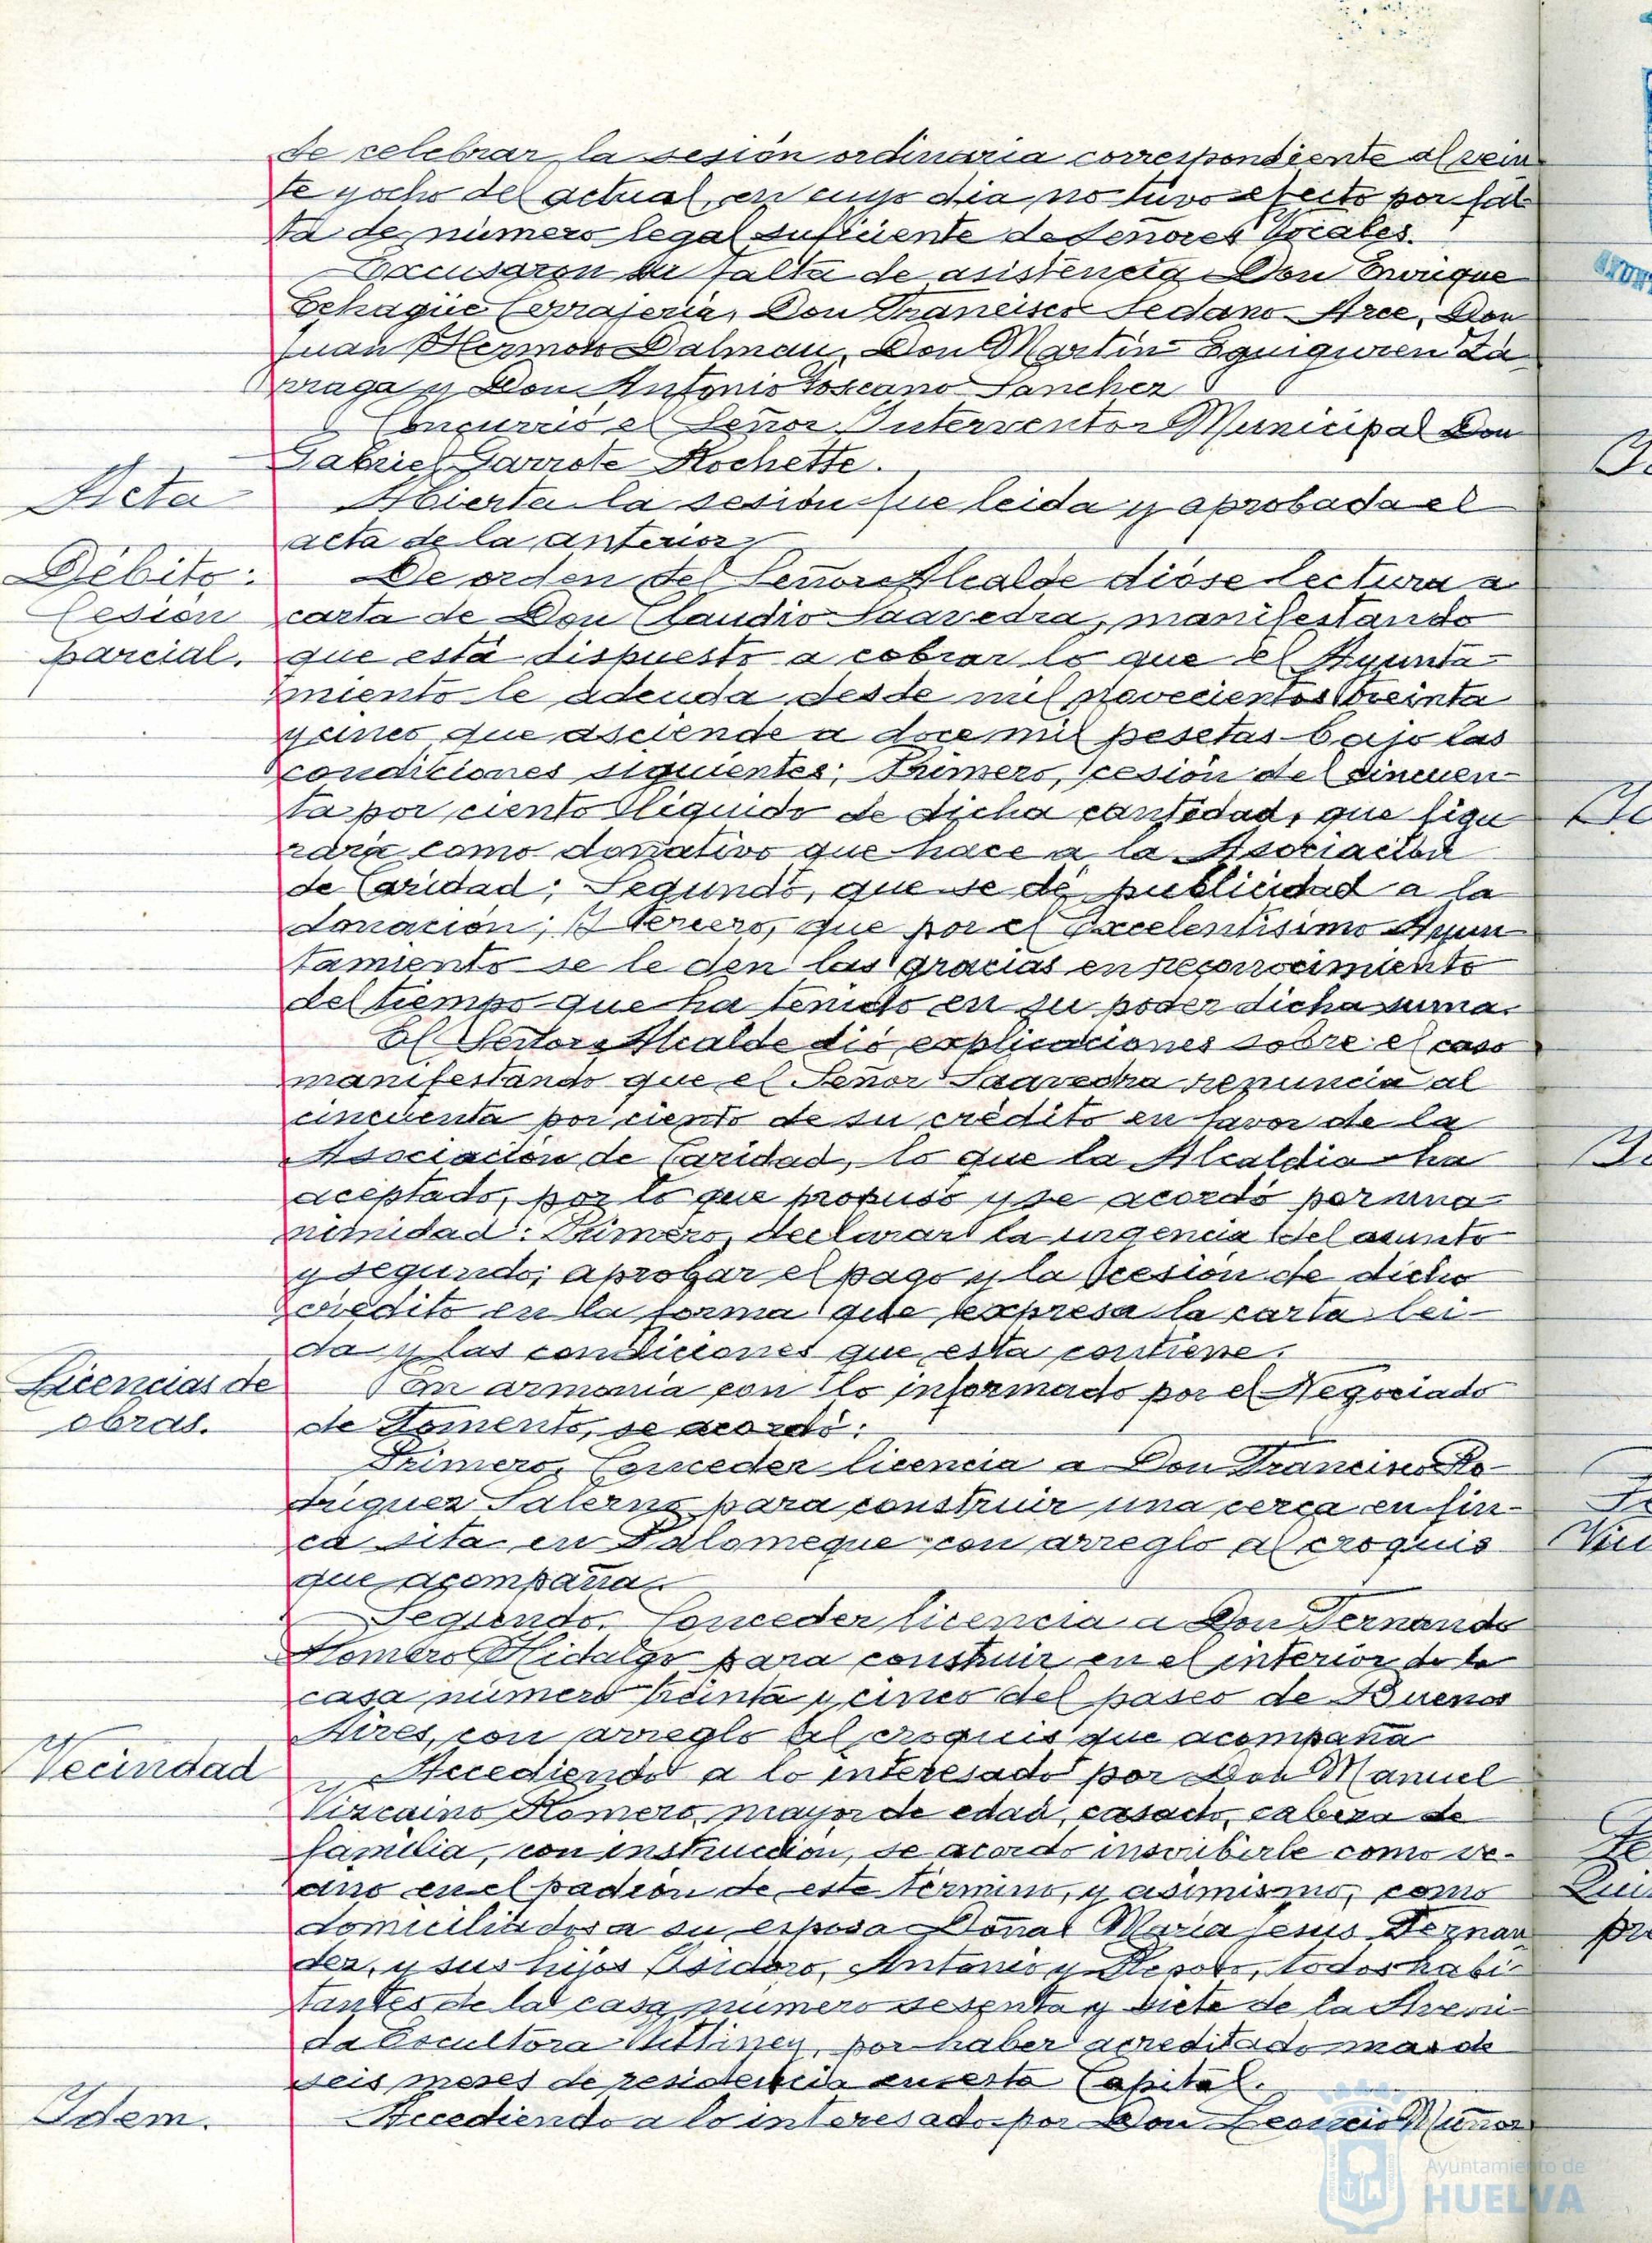 de celebrar la sesión ordinaria correspondiente al vein
te y ocho del actual, en cuyo dia no tuvo efecto por fal
ta de número legal suficiente de Señores Vocales.
Excusaron su falta de asistencia Don Enrique
Echagüe Cerrajería, Don Francisco Sedano Arce, Don
Juan Hermoso Dalmau, Don Martin Eguiguren La
rraga y Don Antonio Toscano Sanchez
Concurrió el Señor Interventor Municipal Don
Gabriel Garrote Rochette.
Acta
Abierta la sesión fue leida y aprobada el
acta de la anterior
Débito:
Cesión
parcial.
De orden del Señor Alcalde dióse lectura a
carta de Don Claudio Saavedra, manifestando
que está dispuesto a cobrar lo que el Ayunta-
miento le adeuda desde mil novecientos treinta
y cinco que asciende a doce mil pesetas bajo las
condiciones siguientes: Primero, cesión del cincuen-
ta por ciento líquido de dicha cantidad, que figu
rará como donativo que hace a la Asociación
de Caridad; Segundo, que se dé publicidad a la
donación; y Tercero, que por el Excelentísimo Ayun
tamiento se le den las gracias en reconocimiento
del tiempo que ha tenido en su poder dicha suma.
El Señor Alcalde dió explicaciones sobre el caso
manifestando que el Señor Saavedra renuncia al
cincuenta por ciento de su crédito en favor de la
Asociación de Caridad, lo que la Alcaldia ha
aceptado, por lo que propuso y se acordó por una
nimidad: Primero, declarar la urgencia del asunto
y segundo, aprobar el pago y la cesión de dicho
crédito en la forma que expresa la carta lei-
da y las condiciones que esta contiene.
Licencias de
obras.
En armonia con lo informado por el Negociado
de Fomento, se acordó:
Primero, Conceder licencia a Don Francisco Ro-
driguez Salerno para construir una cerca en fin-
ca sita en Palomeque con arreglo al croquis
que acompaña.
Segundo. Conceder licencia a Don Fernando
Romero Hidalgo para construir en el interior de la
casa número treinta y cinco del paseo de Buenos
Aires, con arreglo al croquis que acompaña
Vecindad
Accediendo a lo interesado por Don Manuel
Vizcaino Romero, mayor de edad, casado, cabeza de
familia, con instrucción, se acordó inscribirle como ve-
cino en el padrón de este término, y asimismo, como
domiciliados a su esposa Doña Maria Jesus Fernan
dez, y sus hijos Isidoro, Antonio y todos habi-
tantes de la casa número sesenta y siete de la Aveni-
da Escultora Wittiney, por haber acreditado mas de
seis meses de residencia en esta Capital.
Idem.
Accediendo a lo interesado por Don Leoncio Muñoz
Ayuntamiento de
HUELVA